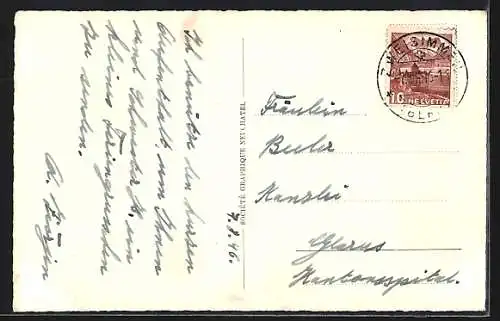 Ich benütze den kurzen
Aufenthalt, um Ihnen
und Schwester H. ein
kleines Feriengrüsschen
zu senden.
A.
7.8.46.
SOCIÉTÉ GRAPHIQUE NEUCHATEL
ZWEISIMMEN
10 HELVETIA
Fräulein
Beeler
Kanzlei
Glarus
Kantonsspital.